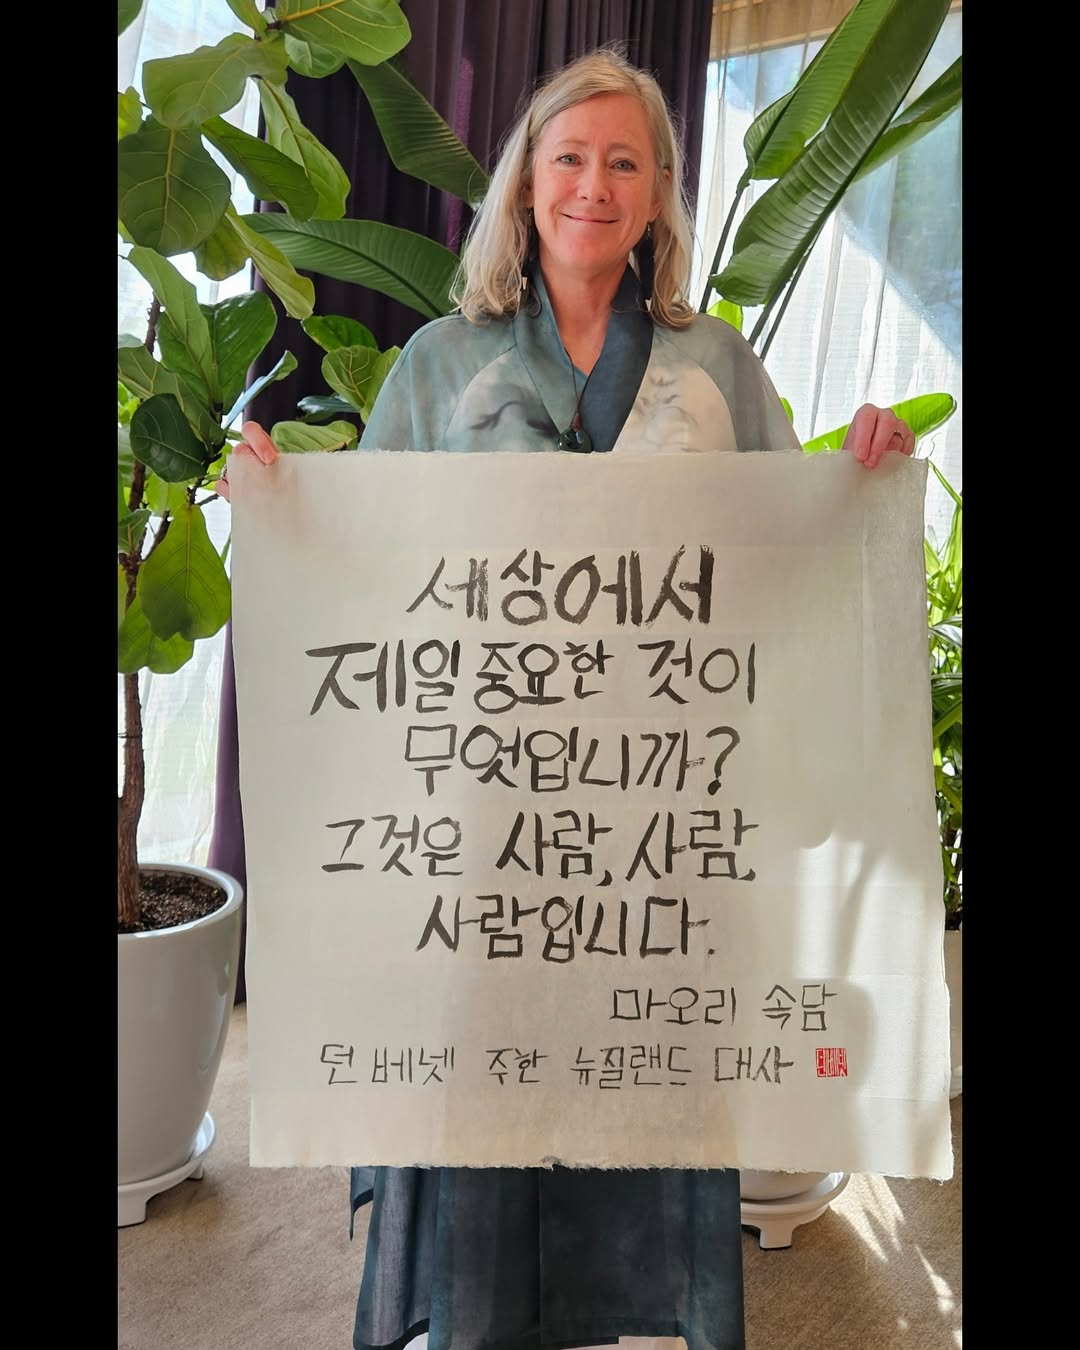 세상에서
제일 중요한 것이
무엇입니까?
그것은 사람, 사람,
사람입니다.
마오리 속담
던 베넷 주한 뉴질랜드 대사 던베넷